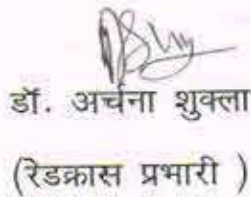 डॉ. अर्चना शुक्ला
(रेडक्रास प्रभारी )